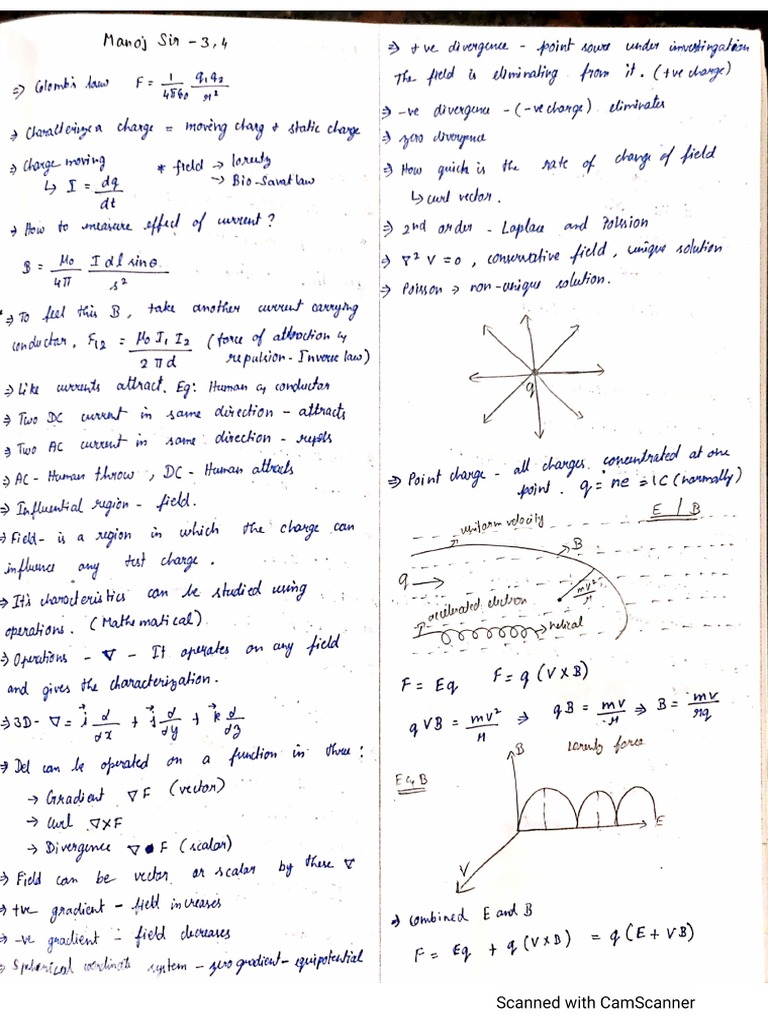 Manoj Sir - 3, 4
⇒ Colombs law F = 1/4πε0 q1q2/r²
⇒ Characterize a charge = moving charg + static charge
⇒ Charge moving * field → lorentz
↳ I = dq/dt → Bio-Savat law
⇒ How to measure effect of current?
B = μ0/4π I dl sinθ/r²
⇒ To feel this B, take another current carrying
conductor, F12 = μ0 I1 I2/2πd (force of attraction &
repulsion - Inverse law)
⇒ Like currents attract. Eg: Human & conductor
⇒ Two DC current in same direction - attracts
⇒ Two AC current in same direction - repels
⇒ AC - Human throw, DC - Human attracts
⇒ Influential region - field.
⇒ Field - is a region in which the charge can
influence any test charge.
⇒ It's characteristics can be studied using
operations. (Mathematical)
⇒ Operations - ∇ - It operates on any field
and gives the characterization.
⇒ 3D - ∇ = i d/dx + j d/dy + k d/dz
⇒ Del can be operated on a function in three:
→ Gradient ∇F (vector)
→ Curl ∇×F
→ Divergence ∇•F (scalar)
⇒ Field can be vector or scalar by these ∇
⇒ +ve gradient - field increases
⇒ -ve gradient - field decreases
⇒ Spherical coordinate system - zero gradient - equipotential
⇒ +ve divergence - point soure under investingation
The field is eliminating from it. (+ve charge)
⇒ -ve divergence - (-ve charge) eliminates
⇒ zero divergence
⇒ How quick is the rate of change of field
↳ curl vector.
⇒ 2nd order - Laplace and Poission
⇒ ∇²V = 0, conservative field, unique solution
⇒ Poisson → non-unique solution.
q
⇒ Point charge - all charges concentrated at one
point. q = ne = 1C (normally)
E / B
uniform velocity
B
q →
mv²/r
accelerated electron
helical
F = Eq F = q (V×B)
qVB = mv²/r ⇒ qB = mv/r ⇒ B = mv/rq
lorentz force
E & B
B
E
V
⇒ Combined E and B
F = Eq + q (V×B) = q (E + VB)
Scanned with CamScanner